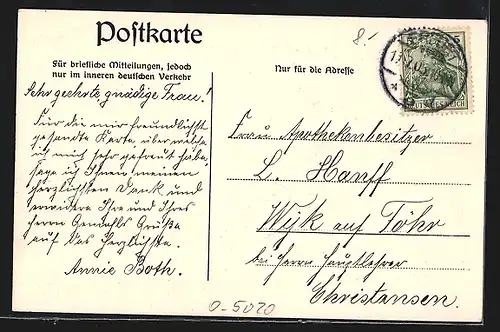 Postkarte
8.-
Für briefliche Mitteilungen, jedoch
nur im inneren deutschen Verkehr
Nur für die Adresse
DEUTSCHES REICH
Sehr geehrte gnädige Frau!
Für die mir freundlichst
gesandte Karte über welche
ich mich sehr gefreut habe,
sage ich Ihnen meinen
herzlichsten Dank und
erwidere Ihre und Ihres
Herrn Gemahls Grüße
auf das Herzlichste.
Annie Both.
Frau Apothekenbesitzer
L. Hanff
Wyk auf Föhr
bei Herrn Hauptlehrer
Christansen.
0-5020